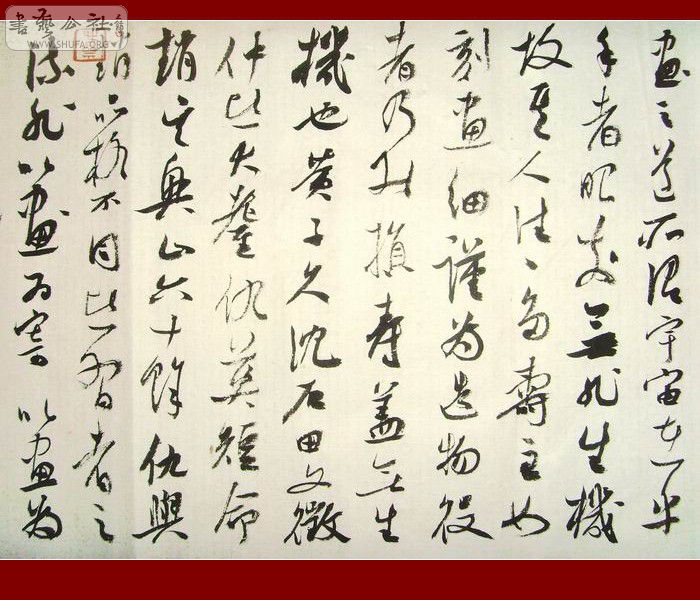 畫之道所謂宇宙在乎
手者眼前無非生機
故其人往往多壽至如
刻畫細謹為造物役
者乃能損壽蓋無生
機也黃子久沈石田文徵
仲皆大耋仇英短命
趙吳興止六十餘仇與
趙品格不同皆習者之
流非以畫為寄以畫為
書藝公社
WWW.SHUFA.ORG